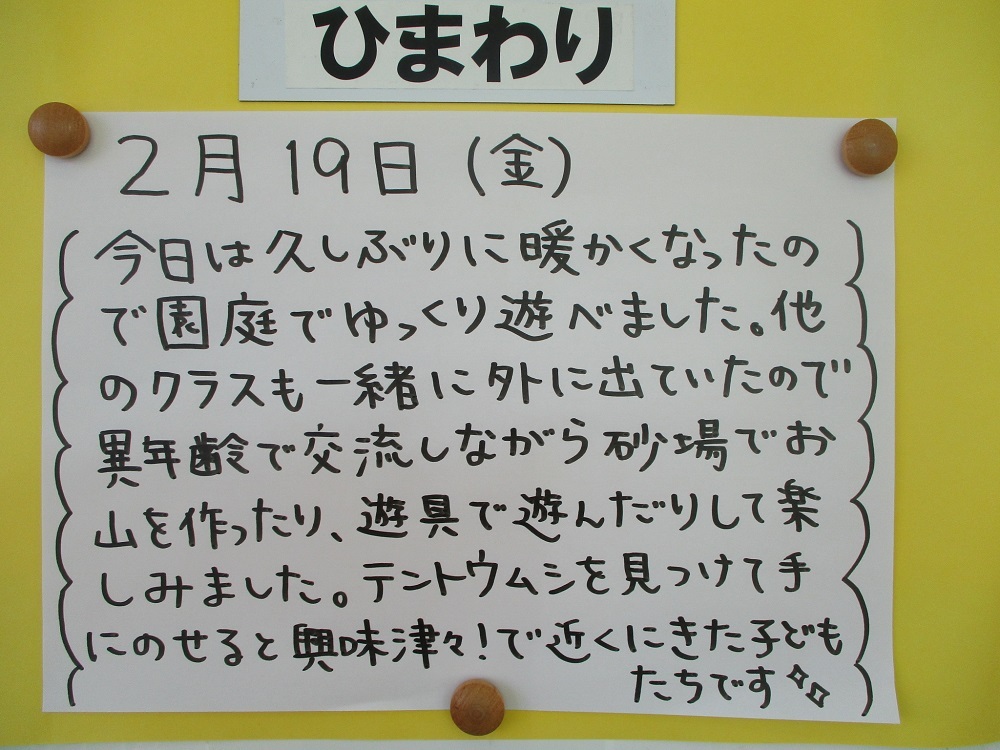 ひまわり
2月19日（金）
今日は久しぶりに暖かくなったの
で園庭でゆっくり遊べました。他
のクラスも一緒に外に出ていたので
異年齢で交流しながら砂場でお
山を作ったり、遊具で遊んだりして楽
しみました。テントウムシを見つけて手
にのせると興味津々！で近くにきた子ども
たちです